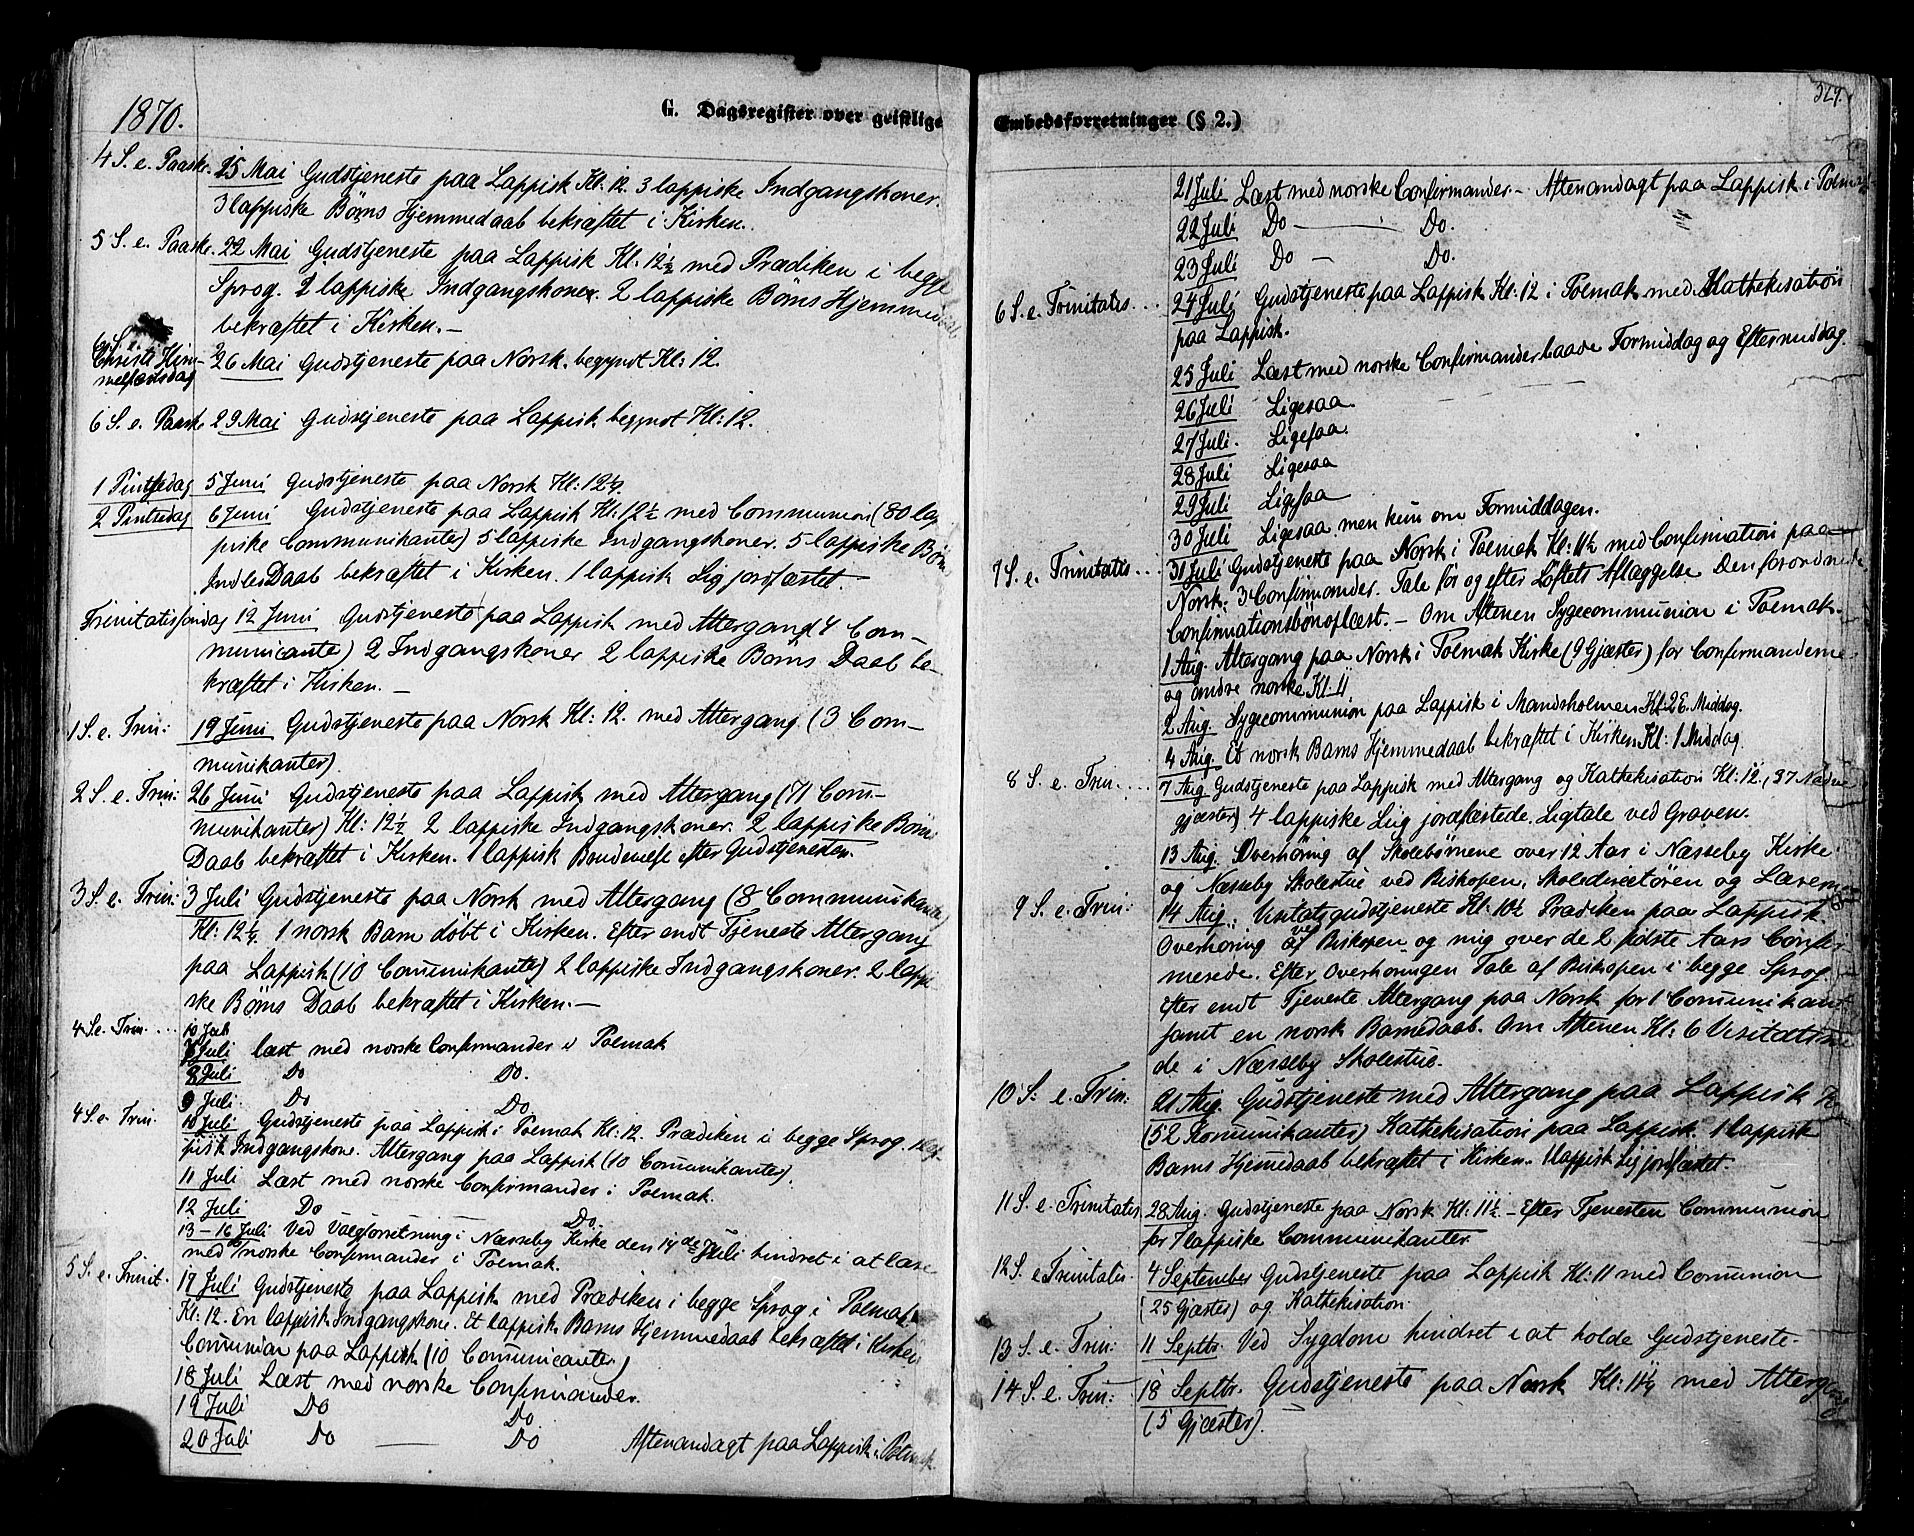 1870.
G. Dagsregister over geistlige
4 S. e. Paaske. 15 Mai Gudstjeneste paa Lappisk Kl. 12. 3 lappiske Indgangskoner.
3 lappiske Børns Hjemmedaab bekræftet i Kirken.
5 S. e. Paaske. 22 Mai Gudstjeneste paa Lappisk Kl: 12½ med Prædiken i begge
Sprog. 2 lappiske Indgangskoner. 2 lappiske Børns Hjemmedaab
bekræftet i Kirken. —
Christi Him-
melfartsdag 26 Mai Gudstjeneste paa Norsk. begyndt Kl: 12.
6 S. e. Paaske 29 Mai Gudstjeneste paa Lappisk begyndt Kl: 12.
1 Pintsedag 5 Juni Gudstjeneste paa Norsk Kl: 12¼.
2 Pintsedag 6 Juni Gudstjeneste paa Lappisk Kl: 12½ med Communion (80 lap
piske Communikanter) 5 lappiske Indgangskoner. 5 lappiske Børn
Daab bekræftet i Kirken. 1 lappisk Lig jordfæstet. —
Trinitatissøndag 12 Juni Gudstjeneste paa Lappisk med Altergang (4 Com-
municanter) 2 Indgangskoner 2 lappiske Børns Daab be-
kræftet i Kirken. —
1 S. e. Trin: 19 Juni Gudstjeneste paa Norsk Kl: 12. med Altergang. (3 Com-
munikanter).
2 S. e. Trin: 26 Juni Gudstjeneste paa Lappisk med Altergang (71 Com-
munikanter) Kl: 12½ 2 lappiske Indgangskoner. 2 lappiske Børns
Daab bekræftet i Kirken. 1 lappisk efter Gudstjenesten.
3 S. e. Trin: 3 Juli Gudstjeneste paa Norsk med Altergang (8 Communikanter)
Kl: 12¼. 1 norsk Barn døbt i Kirken. Efter endt Tjeneste Altergang
paa Lappisk (10 Comunikanter) 2 lappiske Indgangskoner. 2 lappi
ske Børns Daab bekræftet i Kirken. —
4 S. e. Trin. ... 10 Juli
7 Juli læst med norske Confirmander i Polmak
8 Juli Do Do.
9 Juli Do Do
4 S. e. Trin. 10 Juli Gudstjeneste paa Lappisk i Polmak Kl: 12. Prædiken i begge Sprog. 1 lap-
pisk Indgangskone. Altergang paa Lappisk (10 Comunikanter).
11 Juli Læst med norske Confirmander i Polmak.
12 Juli Do Do
13 – 16 Juli Ved Valgforretning i Næsseby Kirke den 14de Juli hindret i at læse
med norske Confirmander i Polmak.
5 S. e. Trinit. 17 Juli Gudstjeneste paa Lappisk med Prædiken i begge Sprog i Polmak
Kl: 12. En lappisk Indgangskone. Et lappisk Barns Hjemmedaab bekræftet i Kirken
Comunion paa Lappisk (10 Comunicanter)
18 Juli Læst med norske Confirmander.
19 Juli Do Do
20 Juli Do — Do Aftenandagt paa Lappisk i Polmak.
Embedsforretninger (§ 2.)
329.
21 Juli Læst med norske Confirmander. – Aftenandagt paa Lappisk i Polmak
22 Juli Do — Do.
23 Juli Do — Do.
6 S. e. Trinitatis ... 24 Juli Gudstjeneste paa Lappisk Kl: 12 i Polmak med Kathekisation
paa Lappisk.
25 Juli Læst med norske Confirmander baade Formiddag og Eftermiddag.
26 Juli Ligesaa.
27 Juli. Ligesaa.
28 Juli Ligesaa
29 Juli Ligesaa
30 Juli Ligesaa. men kun om Formiddagen.
7 S. e. Trinitatis ... 31 Juli Gudstjeneste paa Norsk i Polmak Kl: 11½ med Confirmation paa
Norsk: 3 Confirmander. Tale før og efter Løftets Aflæggelse Den forordnede
Confirmationsbøn oplæst. – Om Aftenen Sygecommunion i Polmak.
1 Aug. Altergang paa Norsk i Polmak Kirke (9 Gjæster) for Confirmanderne
og andre norske Kl. 11
2 Aug. Sygecommunion paa Lappisk i Mandsholmen Kl: 2 E. Middag.
4 Aug. Et norsk Barns Hjemmedaab bekræftet i Kirken Kl: 1 Middag.
8 S. e. Trin. .... 7 Aug Gudstjeneste paa Lappisk med Altergang og Kathekisation Kl: 12. (37 Nadver
gjæster) 4 lappiske Liig jordfæstede. Ligtale ved Graven.
13 Aug. Overhøring af Skolebørnene over 12 Aar i Næsseby Kirke
og Næsseby Skolestue ved Biskopen, Skoledirectören og Læreren
9 S. e. Trin: 14 Aug.: Visitatsgudstjeneste Kl: 10½ Prædiken paa Lappisk.
Overhøring ved Biskopen og mig over de 2 sidste Aars Confir-
merede. Efter Overhøringen Tale af Biskopen i begge Sprog.
Efter endt Tjeneste Altergang paa Norsk for 1 Comunikant
samt en norsk Barnedaab. Om Aftenen Kl: 6 Visitatsmø
de i Næsseby Skolestue.
10 S: e. Trin: 21 Aug. Gudstjeneste med Altergang paa Lappisk
(52 Komunikanter) Kathekisation paa Lappisk. 1 lappisk
Barns Hjemedaab bekræftet i Kirken. 1 lappisk Lig jordfæstet.
11 S. e. Trinitatis 28 Aug. Gudstjeneste paa Norsk Kl: 11½ – Efter Tjenesten Communion
for 7 lappiske Communikanter.
12 S. e Trinitatis. 4 September Gudstjeneste paa Lappisk Kl: 11 med Comunion
(25 Gjæster) og Kathekisation.
13 S. e. Trin: 11 Septbr. Ved Sygdom hindret i at holde Gudstjeneste.
14 S. e. Trin: 18 Septbr. Gudstjeneste paa Norsk Kl: 11¼ med Altergang
(5 Gjæster).